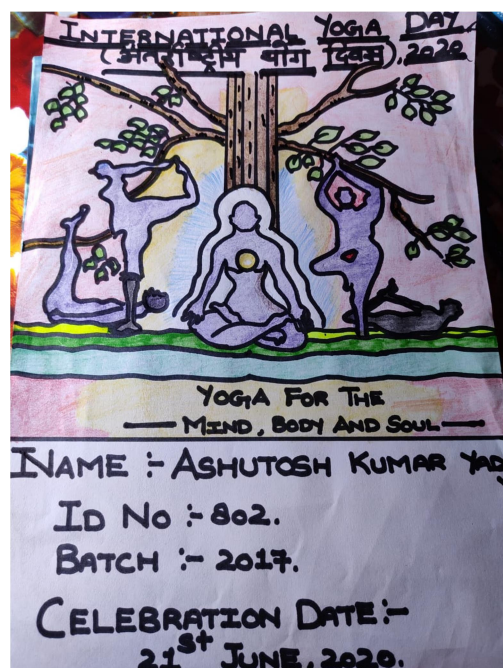 INTERNATIONAL YOGA DAY
(अंतर्राष्ट्रीय योग दिवस), 2020
YOGA FOR THE
MIND, BODY AND SOUL
NAME :- ASHUTOSH KUMAR
ID NO :- 802.
BATCH :- 2017.
CELEBRATION DATE:-
21st JUNE, 2020.